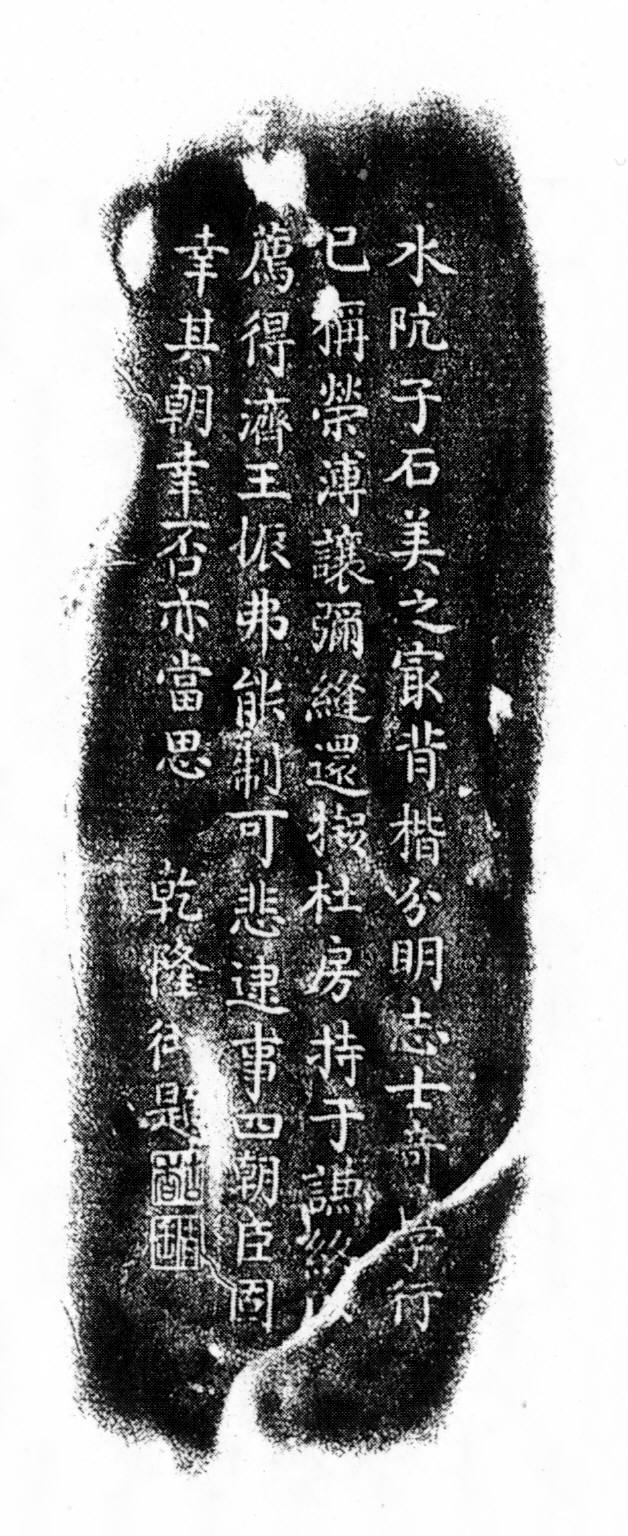 水阬子石美之㝡背楷分明志士竒学行
已稱榮溥讓彌縫還擬杜房持于謙終以
薦得濟王振弗能制可悲逮事四朝臣固
幸其朝幸否亦當思 乾隆御題